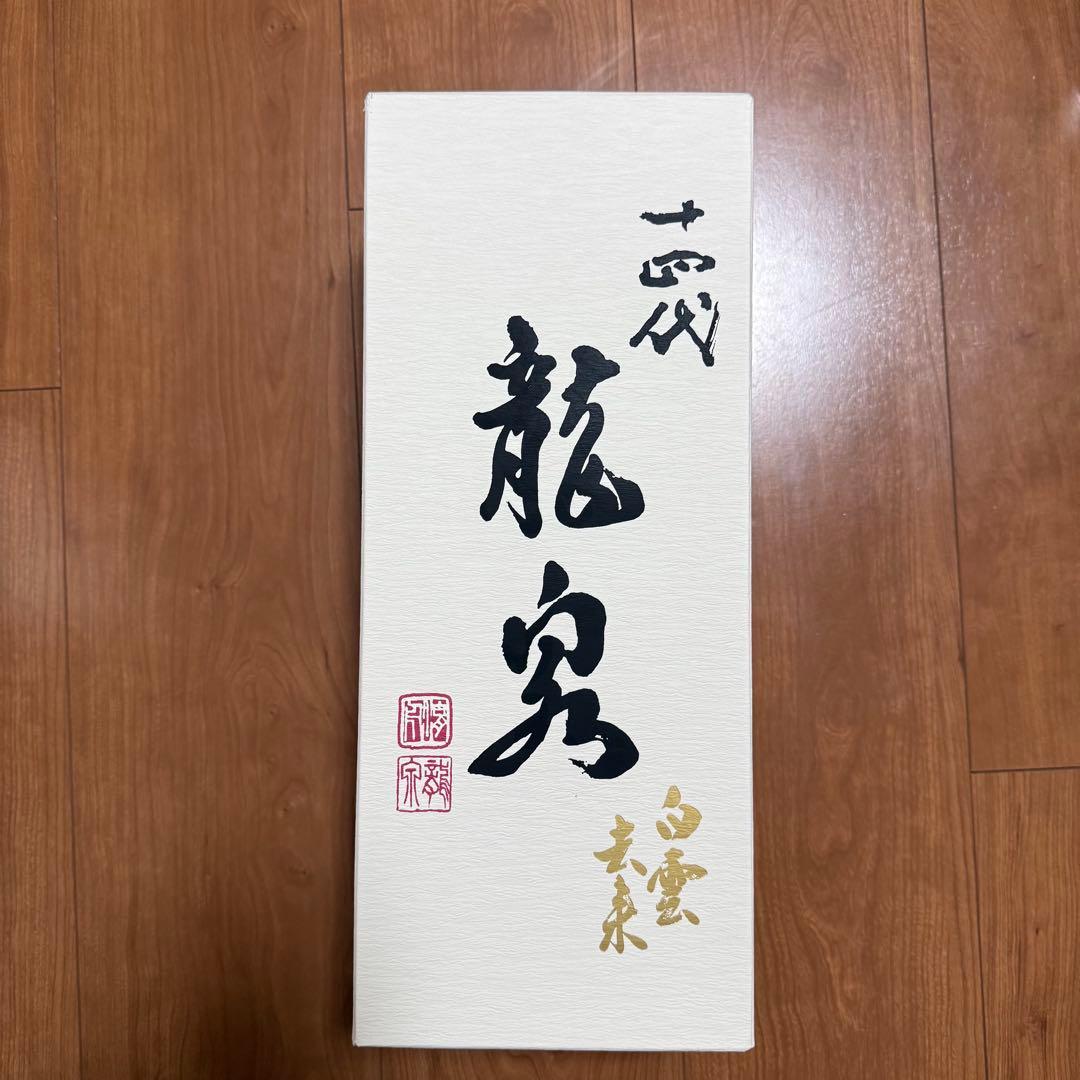 十四代
龍泉
白雲
去来
龍泉